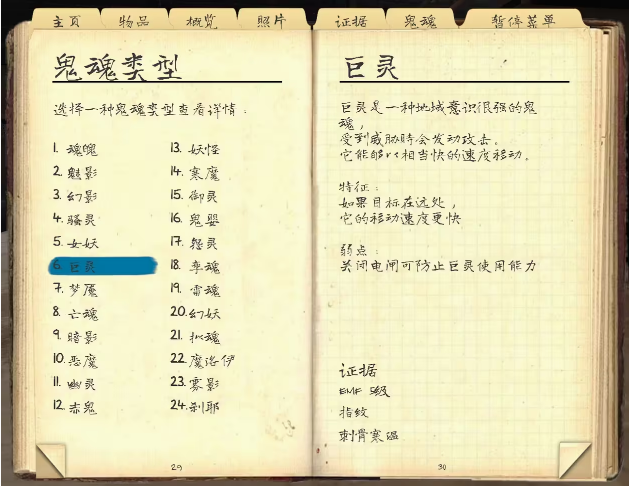 主页
物品
概览
照片
证据
鬼魂
暂停菜单
鬼魂类型
选择一种鬼魂类型查看详情：
1. 魂魄
2. 魅影
3. 幻影
4. 骚灵
5. 女妖
6. 巨灵
7. 梦魇
8. 亡魂
9. 暗影
10. 恶魔
11. 幽灵
12. 赤鬼
13. 妖怪
14. 寒魔
15. 御灵
16. 鬼婴
17. 怨灵
18. 孪魂
19. 雷魂
20. 幻妖
21. 拟魂
22. 魔洛伊
23. 雾影
24. 刹耶
29
巨灵
巨灵是一种地域意识很强的鬼
魂，
受到威胁时会发动攻击。
它能够以相当快的速度移动。
特征：
如果目标在远处，
它的移动速度更快
弱点：
关闭电闸可防止巨灵使用能力
证据
EMF 5级
指纹
刺骨寒温
30